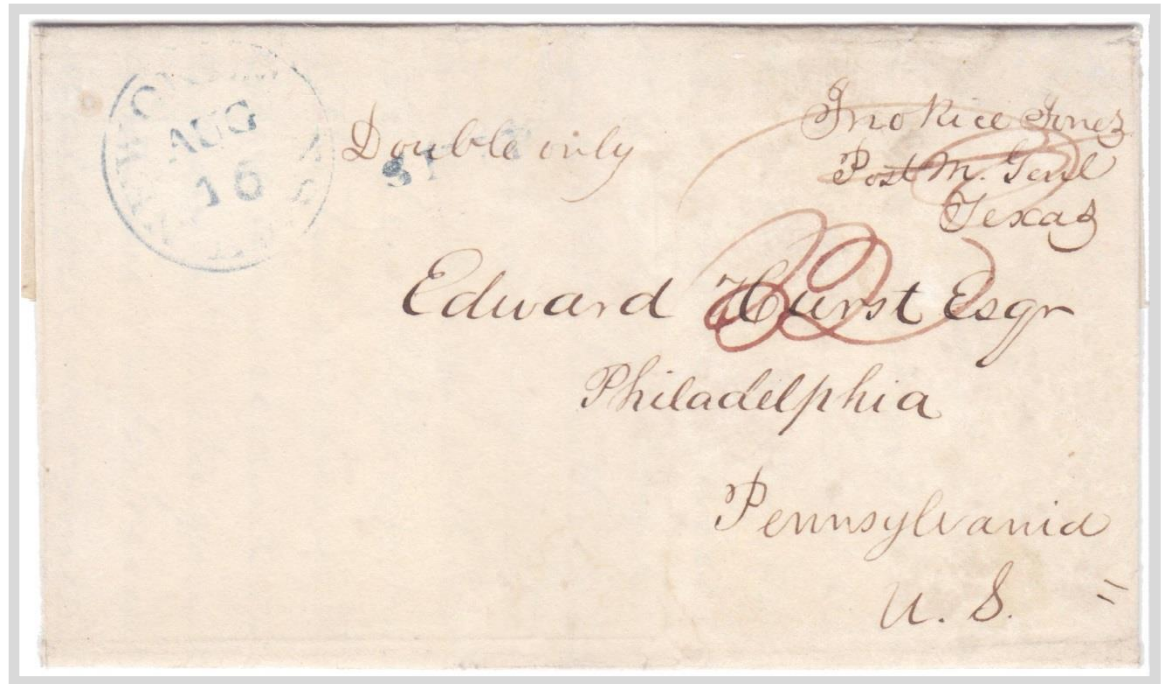 AUG
16
Double only
Jno Rice Jones
Post M. Genl
Texas
Edward Hurst Esqr
Philadelphia
Pennsylvania
U. S.